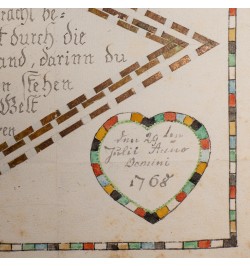 bracht be-
t durch die
and, darinn du
n stehen
Welt
ren
den 29 ten
Julii Anno
Domini
1768